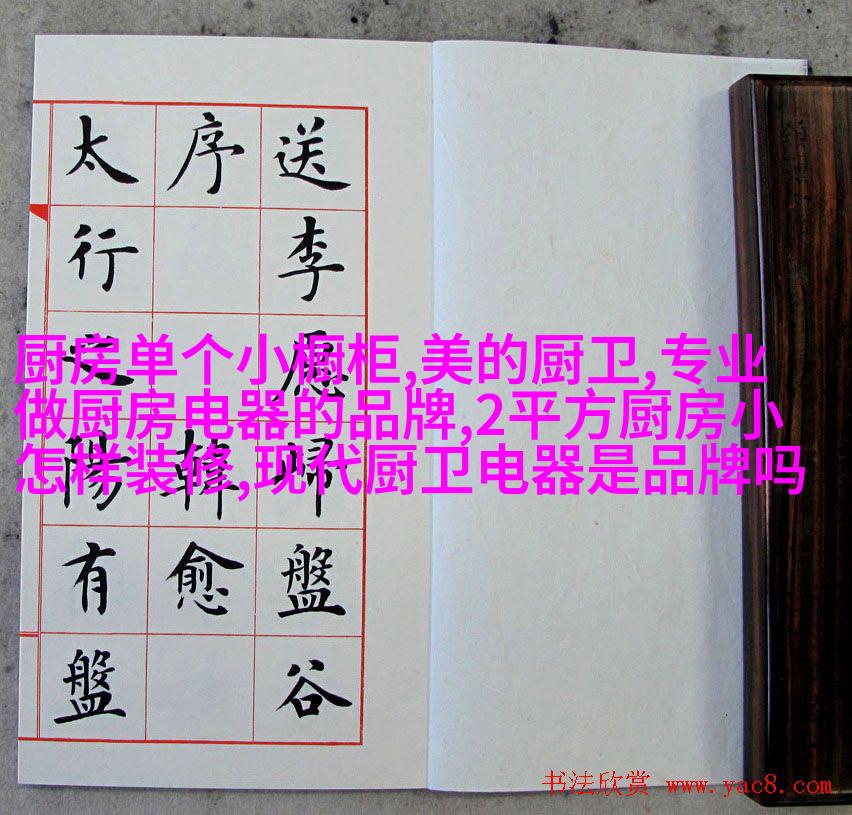 送李愿歸盤谷
序 韓愈
太行之陽有盤
厨房单个小橱柜,美的厨卫,专业
做厨房电器的品牌,2平方厨房小
怎样装修,现代厨卫电器是品牌吗
书法欣赏 www.yac8.com